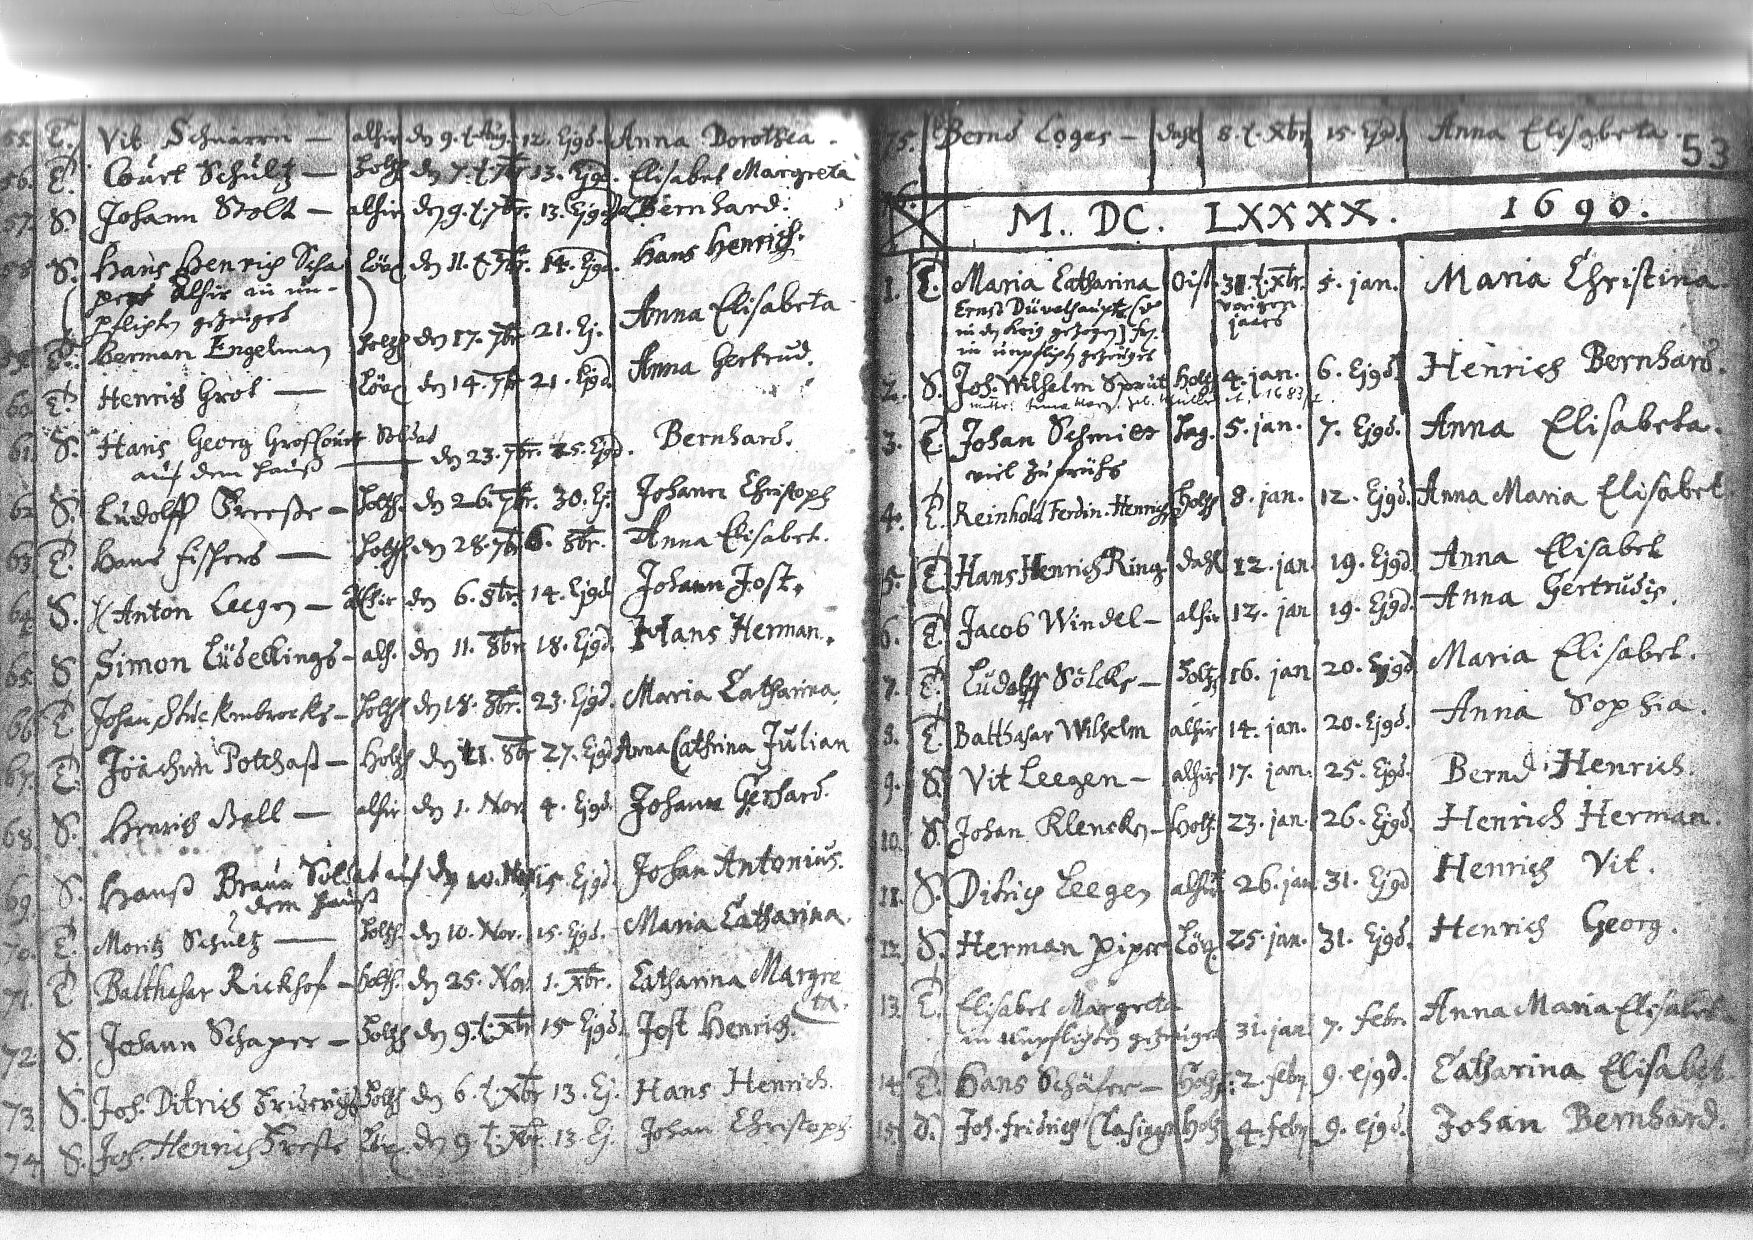 55. T. Vit Schnaren — alhir den 9. t. Aug. 12. Ejgd. Anna Dorothea.
56. T. Court Schultz — Holtzh. den 7. t. 7br 13. Ejgd. Elisabet Margreta
57. S. Johann Stolt — alhir den 9. t. 7br. 13. Ejgd. Bernhard.
58. S. Hans Henrich Scha Löx den 11. t. 7br. 14. Ejgd. Hans Henrich.
per alhir in un-
pflichten gezeuget
T. Herman Engelman Holtzh den 17. 7br 21. Ej. Anna Elisabeta
60. T. Henrich Grot — Löx den 14. 7br 21. Ejgd Anna Gertrud.
61. S. Hans Georg Grofcourt Soldat
auf dem hauß — den 23. 7br. 25. Ejgd. Bernhard.
62 S. Ludolff Freese — Holtzh. den 26. 7br. 30. Ej. Johann Christoph
63. T. Hans Fischers — Holtzh den 28. 7br 6. 8br. Anna Elisabet.
64. S. Anton Leegen — Alhir den 6. 8br. 14. Ejgd. Johann Jost.
65. S Simon Lüdekings — alh. den 11. 8br 18. Ejgd. Hans Herman.
66. T Johan Stückenbrocks — Holtzh den 18. 8br. 23. Ejgd. Maria Catharina.
67. T. Jöachim Potthast — Holtzh den 21. 8br 27. Ejgd Anna Cathrina Julian
68. S. Henrich Ball — alhir den 1. Nov 4. Ejgd. Johann Gerhard.
69. S. Hanß Braun Soldat auf den 10. Nov 15 Ejgd. Johan Antonius.
dem hauß
70. T. Moritz Schultz — Holtzh. den 10. Nov. 15. Ejgd. Maria Catharina.
71. T Balthasar Rickhof — Holtzh. den 25. Nov 1. Xbr. Catharina Margre
ta.
72. S. Johann Schaper — Holtzh den 9. t. Xbr 15 Ejgd. Jost Henrich.
73. S. Joh. Ditrich Friderichs Holtzh den 6. t. Xbr 13. Ej. Hans Henrich.
74. S. Joh. Henrich Freese Löx. den 9 t. Xbr. 13. Ej. Johan Christoph.
75. Bernd Loges — dahl 8. t. Xbr 15. Ejgd. Anna Elisabeta.
53
M. DC. LXXXX. 1690.
1. T. Maria Catharina Oist. 31. t. Xbr. 5. jan. Maria Christina.
Ernst Düvelhaupts
vorigen
in den krig gezogen
jaars
in unpflicht gezeuget
2. S. Joh. Wilhelm Sprut Holtz 4. jan. 6. Ejgd. Henrich Bernhard.
3. T. Johan Schmier Hag. 5. jan. 7. Ejgd. Anna Elisabeta.
viel zu frühe
4. T. Reinhold Ferdin. Henrichs Holtzh 8. jan. 12. Ejgd. Anna Maria Elisabet
5. T. Hans Henrich Ring. dahl 12. jan 19. Ejgd Anna Elisabet
6. T. Jacob Windel — alhir 12. jan 19. Ejgd. Anna Gertrudis.
7. T. Ludolff Sölcke — Holtzh 16. jan 20. Ejgd Maria Elisabet.
8. T. Balthasar Wilhelm alhir 14. jan. 20. Ejgd. Anna Sophia.
9. S. Vit Leegen — alhir 17. jan. 25. Ejgd. Bernd Henrich.
10. S. Johan Klencken — Holtz 23. jan. 26. Ejgd. Henrich Herman.
11. S. Ditrich Leegen alhir 26. jan 31. Ejgd Henrich Vit.
12. S. Herman Piper Löx. 25. jan. 31. Ejgd. Henrich Georg.
13. T. Elisabet Margreta
in Unpflichten gezeuget 31. jan 7. febr. Anna Maria Elisabet
14. T. Hans Schäfer — Holtzh. 2. febr 9. ejgd. Catharina Elisabet.
15. S. Joh. Fridrich Holtz 4. febr 9. ejgd. Johan Bernhard.